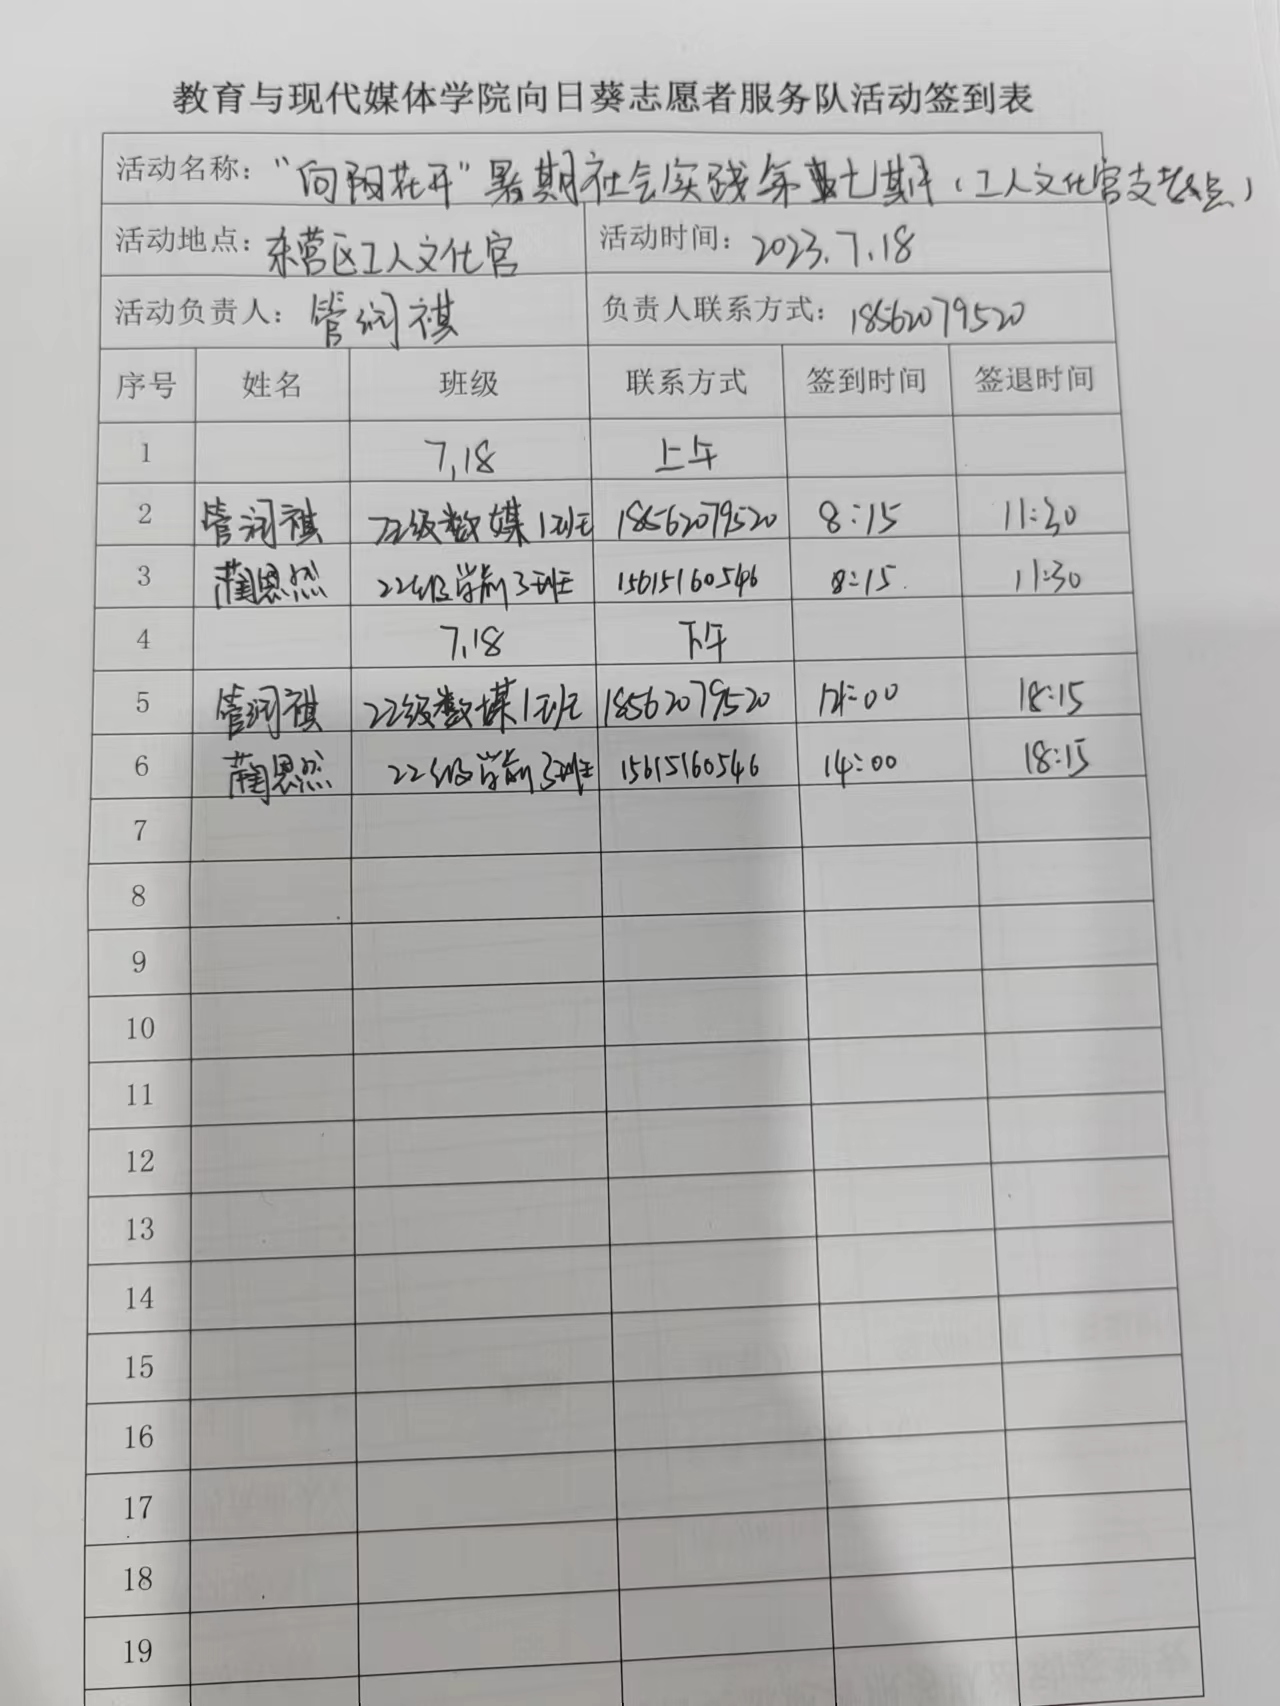 教育与现代媒体学院向日葵志愿者服务队活动签到表
活动名称：“向阳花开”暑期社会实践第七期（工人文化宫支教点）
活动地点：东营区工人文化宫 活动时间：2023.7.18
活动负责人：管润祺 负责人联系方式：18562079520
序号 姓名 班级 联系方式 签到时间 签退时间
1 7.18 上午
2 管润祺 22级数媒1班 18562079520 8:15 11:30
3 蔺恩然 22级学前3班 15615160546 8:15 11:30
4 7.18 下午
5 管润祺 22级数媒1班 18562079520 14:00 18:15
6 蔺恩然 22级学前3班 15615160546 14:00 18:15
7
8
9
10
11
12
13
14
15
16
17
18
19